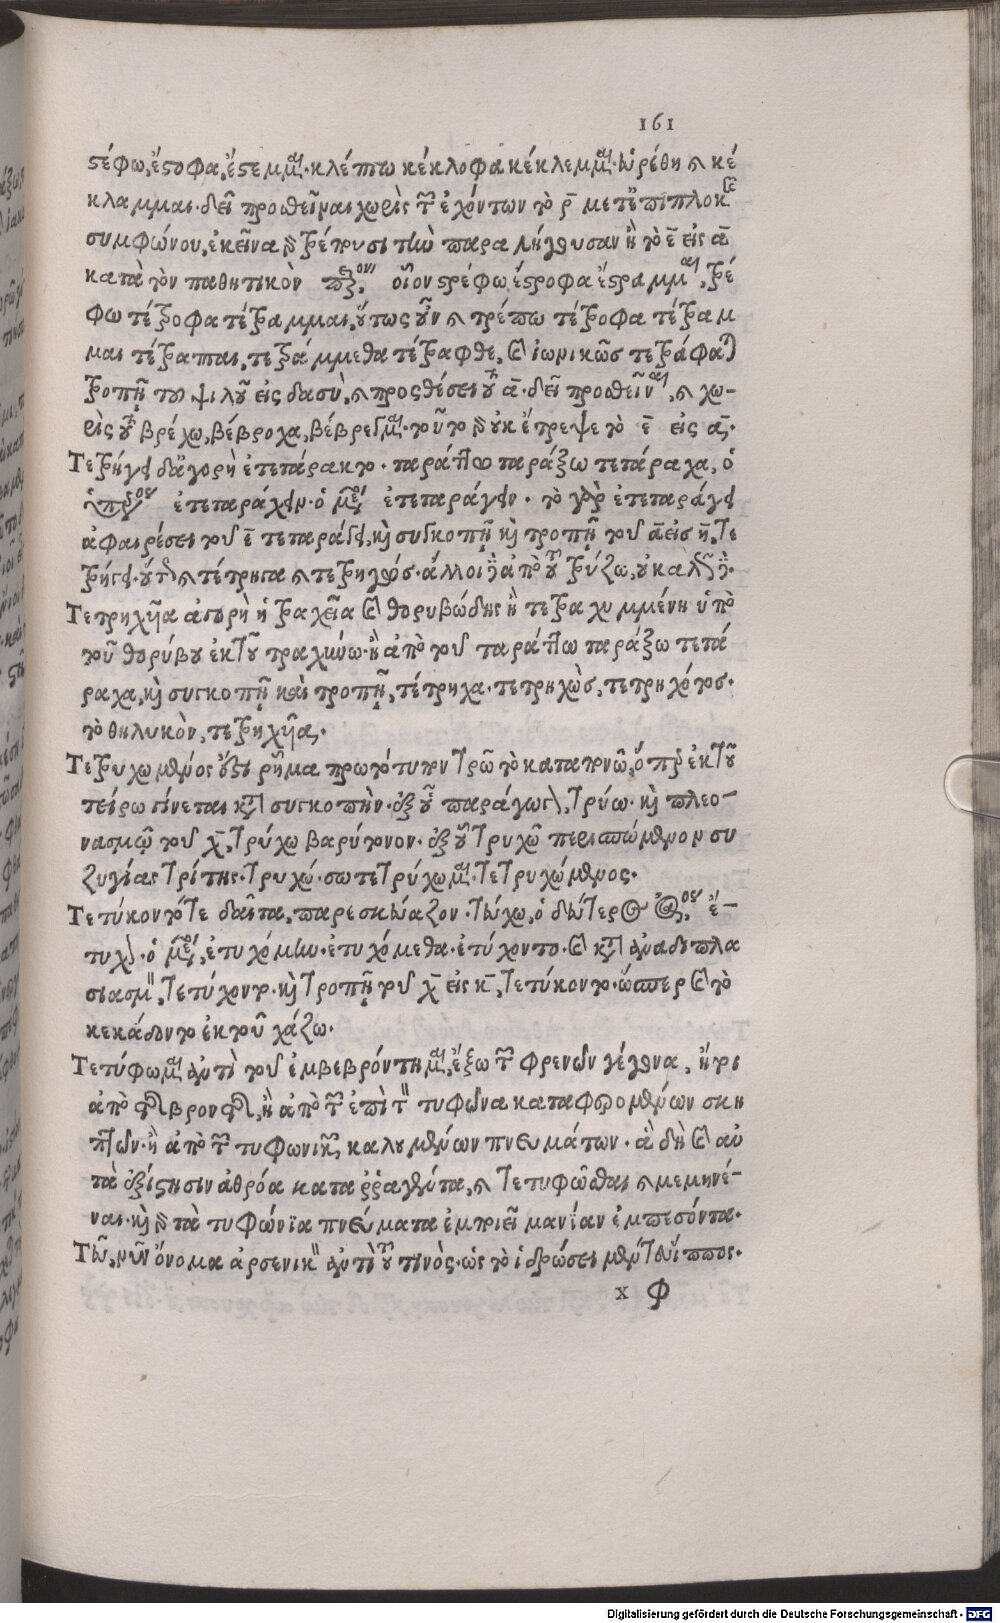 161
στέφω, ἔστοφα, ἔστεμμαι· κλέπτω κέκλοφα κέκλεμμαι· εὑρέθη τὸ κέ
κλαμμαι· δεῖ προσθεῖναι χωρὶς τῶν ἐχόντων τὸ ρ̄ μετ' ἐπιπλοκῆς
συμφώνου, ἐκεῖνα γὰρ τρέπουσι τὴν παραλήγουσαν ἢ τὸ ε̄ εἰς ᾱ
κατὰ τὸν παθητικὸν οἷον στρέφω, ἔστροφα ἔστραμμαι, τρέ
φω τέτροφα τέτραμμαι, οὕτως οὖν τὸ τρέπω τέτροφα τέτραμ
μαι τέτραπται, τετράμμεθα τέτραφθε, καὶ ἰωνικῶς τετράφαται
τροπῇ τοῦ ψιλοῦ εἰς δασὺ, τὸ προσθέσει τοῦ ᾱ· δεῖ προσθεῖναι, τὸ χω-
ρὶς τοῦ βρέχω, βέβροχα, βέβρεγμαι· τοῦτο γὰρ οὐκ ἔτρεψε τὸ ε̄ εἰς ᾱ·
Τετρήχει δ' ἀγορὴ ἐτετάρακτο· ταράττω ταράξω τετάραχα, ὁ
ἐτεταράχειν· ὁ μέσος ἐτεταράγειν· τὸ γ' ἐτεταράγει
ἀφαιρέσει τοῦ ε̄ τεταράγει, καὶ συγκοπῇ καὶ τροπῇ τοῦ ᾱ εἰς η̄, τε
τρήγει· οὕτω τὸ τέτρηγα τὸ τετρηγώς· ἄλλοι ἀπὸ τοῦ τρύζω, οὐ καλῶς.
Τετρηχῖα ἀγορὴ ἡ τραχεῖα καὶ θορυβώδης ἢ τετραχυμμένη ὑπὸ
τοῦ θορύβου ἐκ τοῦ τραχύνω· ἢ ἀπὸ τοῦ ταράττω ταράξω τετά
ραχα, καὶ συγκοπῇ καὶ τροπῇ, τέτρηχα· τετρηχὼς, τετρηχότος·
τὸ θηλυκὸν, τετρηχῖα.
Τετρυχωμένος ῥῆμα πρωτότυπον τρῶ τὸ καταπονῶ, ὅπερ ἐκ τοῦ
τείρω γίνεται κατὰ συγκοπὴν· ἐξ οὗ παράγωγον, τρύω· καὶ πλεο-
νασμῷ τοῦ χ̄, τρύχω βαρύτονον· ἐξ οὗ τρυχῶ περισπώμενον συ
ζυγίας τρίτης· τρυχώ·σω τετρύχωμαι· τετρυχώμενος.
Τετύκοντό τε δαῖτα, παρεσκεύαζον· τεύχω, ὁ δεύτερος ἔ-
τυχον· ὁ μέσος, ἐτυχόμην· ἐτυχόμεθα· ἐτύχοντο· καὶ κατὰ ἀναδιπλα
σιασμὸν, τετύχοντο· καὶ τροπῇ τοῦ χ̄ εἰς κ̄, τετύκοντο· ὥσπερ καὶ τὸ
κεκάδοντο ἐκ τοῦ χάζω.
Τετύφωμαι ἀντὶ τοῦ ἐμβεβρόντημαι, ἔξω τῶν φρενῶν γέγονα, ἤτοι
ἀπὸ τῶν βροντῶν, ἢ ἀπὸ τῶν ἐπὶ τὸν τυφῶνα καταφερομένων σκη
πτῶν· ἢ ἀπὸ τῶν τυφωνικῶν καλουμένων πνευμάτων· ἃ δὴ καὶ αὐ
τὰ ἐξίστησιν ἀθρόα καταρραγέντα, τὸ τετυφῶσθαι τὸ μεμηνέ-
ναι· καὶ γὰρ τὰ τυφώνια πνεύματα ἐμποιεῖ μανίαν ἐμπεσόντα.
Τεῦ, νῦν ὄνομα ἀρσενικὸν ἀντὶ τοῦ τινὸς· ὡς τὸ ἱδρώσει μέν τευ ἵππος.
x Φ
Digitalisierung gefördert durch die Deutsche Forschungsgemeinschaft - DFG